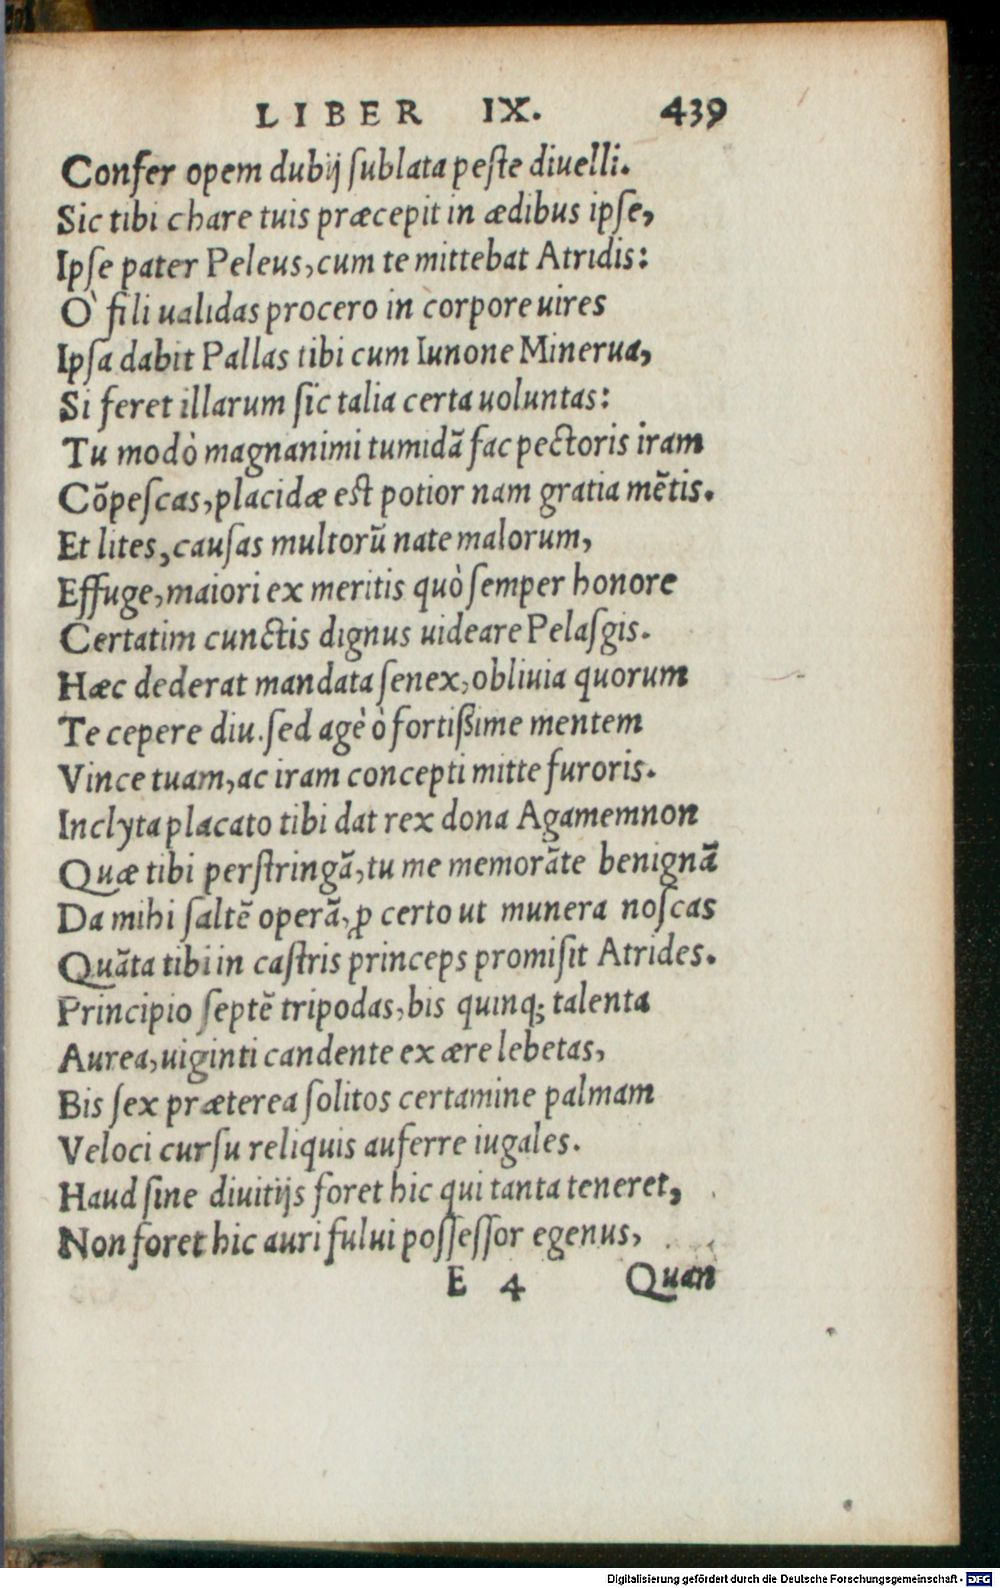 LIBER IX. 439
Confer opem dubij ſublata peſte diuelli.
Sic tibi chare tuis præcepit in ædibus ipſe,
Ipſe pater Peleus, cum te mittebat Atridis:
O` fili ualidas procero in corpore uires
Ipſa dabit Pallas tibi cum Iunone Minerua,
Si feret illarum ſic talia certa uoluntas:
Tu modò magnanimi tumidã fac pectoris iram
Cõpeſcas, placidæ est potior nam gratia mẽtis.
Et lites, cauſas multorũ nate malorum,
Effuge, maiori ex meritis quò ſemper honore
Certatim cunctis dignus uideare Pelaſgis.
Hæc dederat mandata ſenex, obliuia quorum
Te cepere diu. ſed agè ò fortißime mentem
Vince tuam, ac iram concepti mitte furoris.
Inclyta placato tibi dat rex dona Agamemnon
Quæ tibi perſtringã, tu me memorãte benignã
Da mihi ſaltẽ operã, ꝓ certo ut munera noſcas
Quãta tibi in caſtris princeps promiſit Atrides.
Principio ſeptẽ tripodas, bis quinq; talenta
Aurea, uiginti candente ex ære lebetas,
Bis ſex præterea ſolitos certamine palmam
Veloci curſu reliquis auferre iugales.
Haud ſine diuitijs foret hic qui tanta teneret,
Non foret hic auri fului poſſeſſor egenus,
E 4 Quan
Digitalisierung gefördert durch die Deutsche Forschungsgemeinschaft - DFG